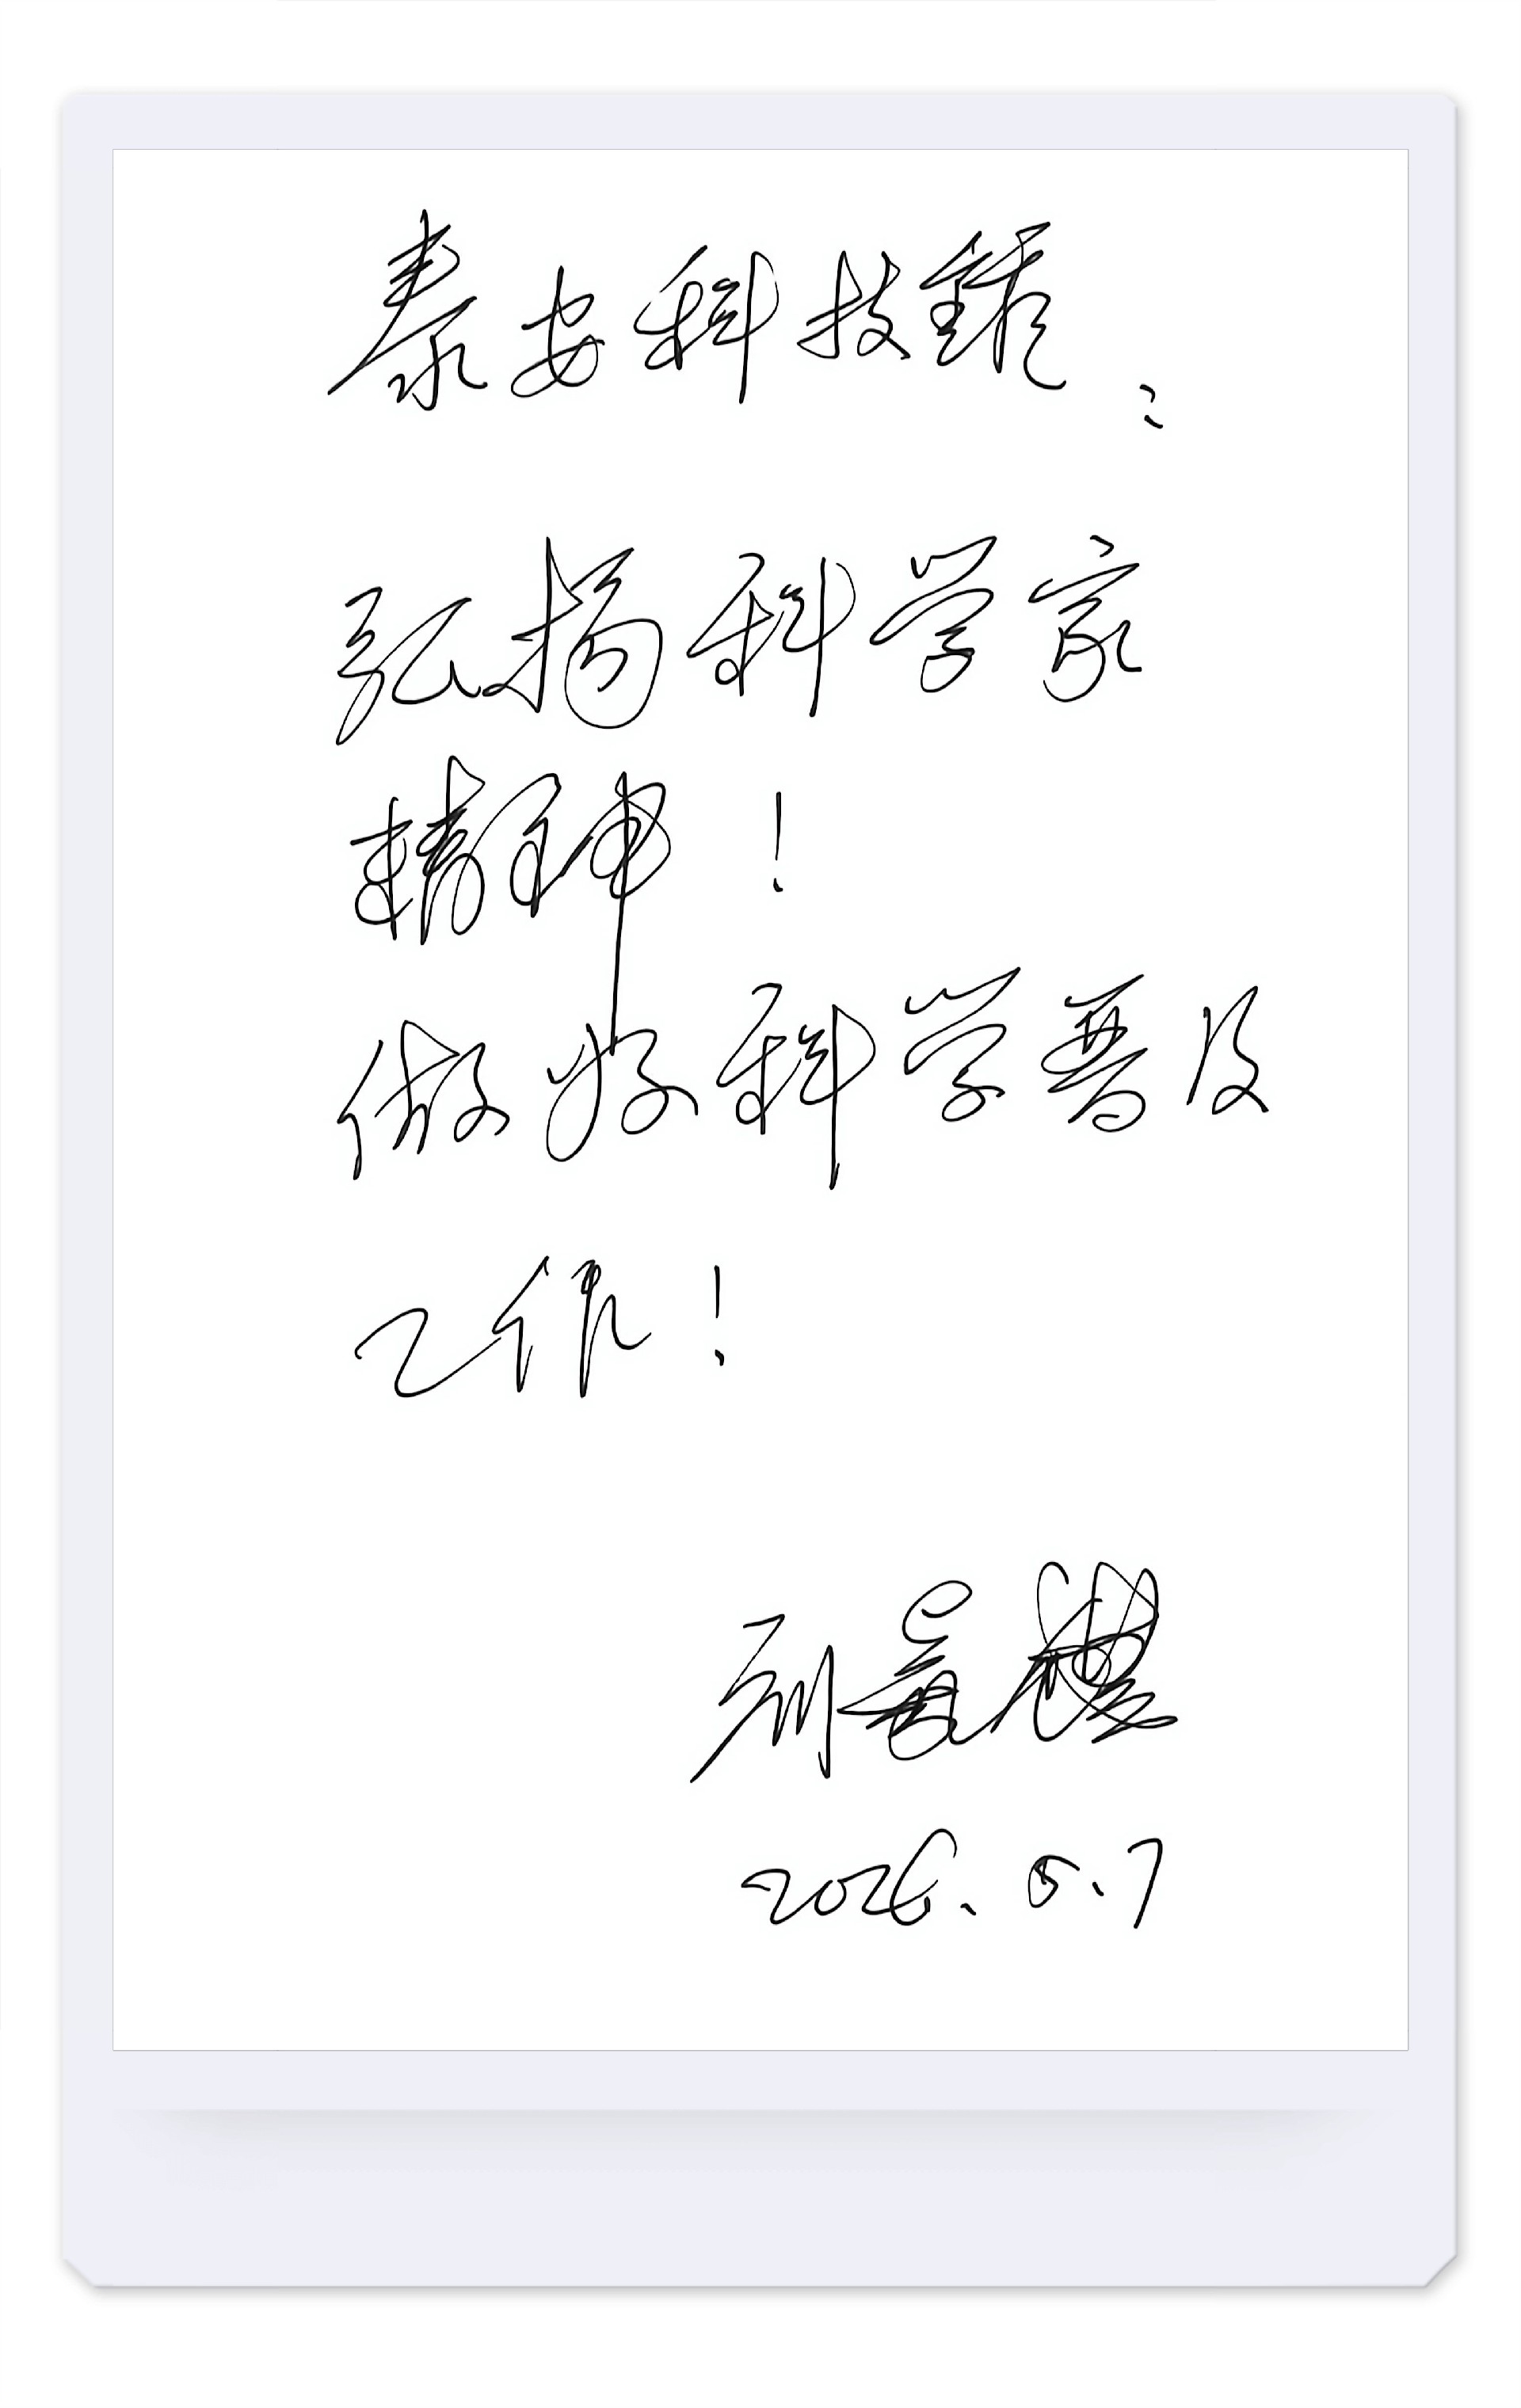 泰安科技馆：
弘扬科学家
精神！
做好科学普及
工作！
刘嘉麒
2026.5.7